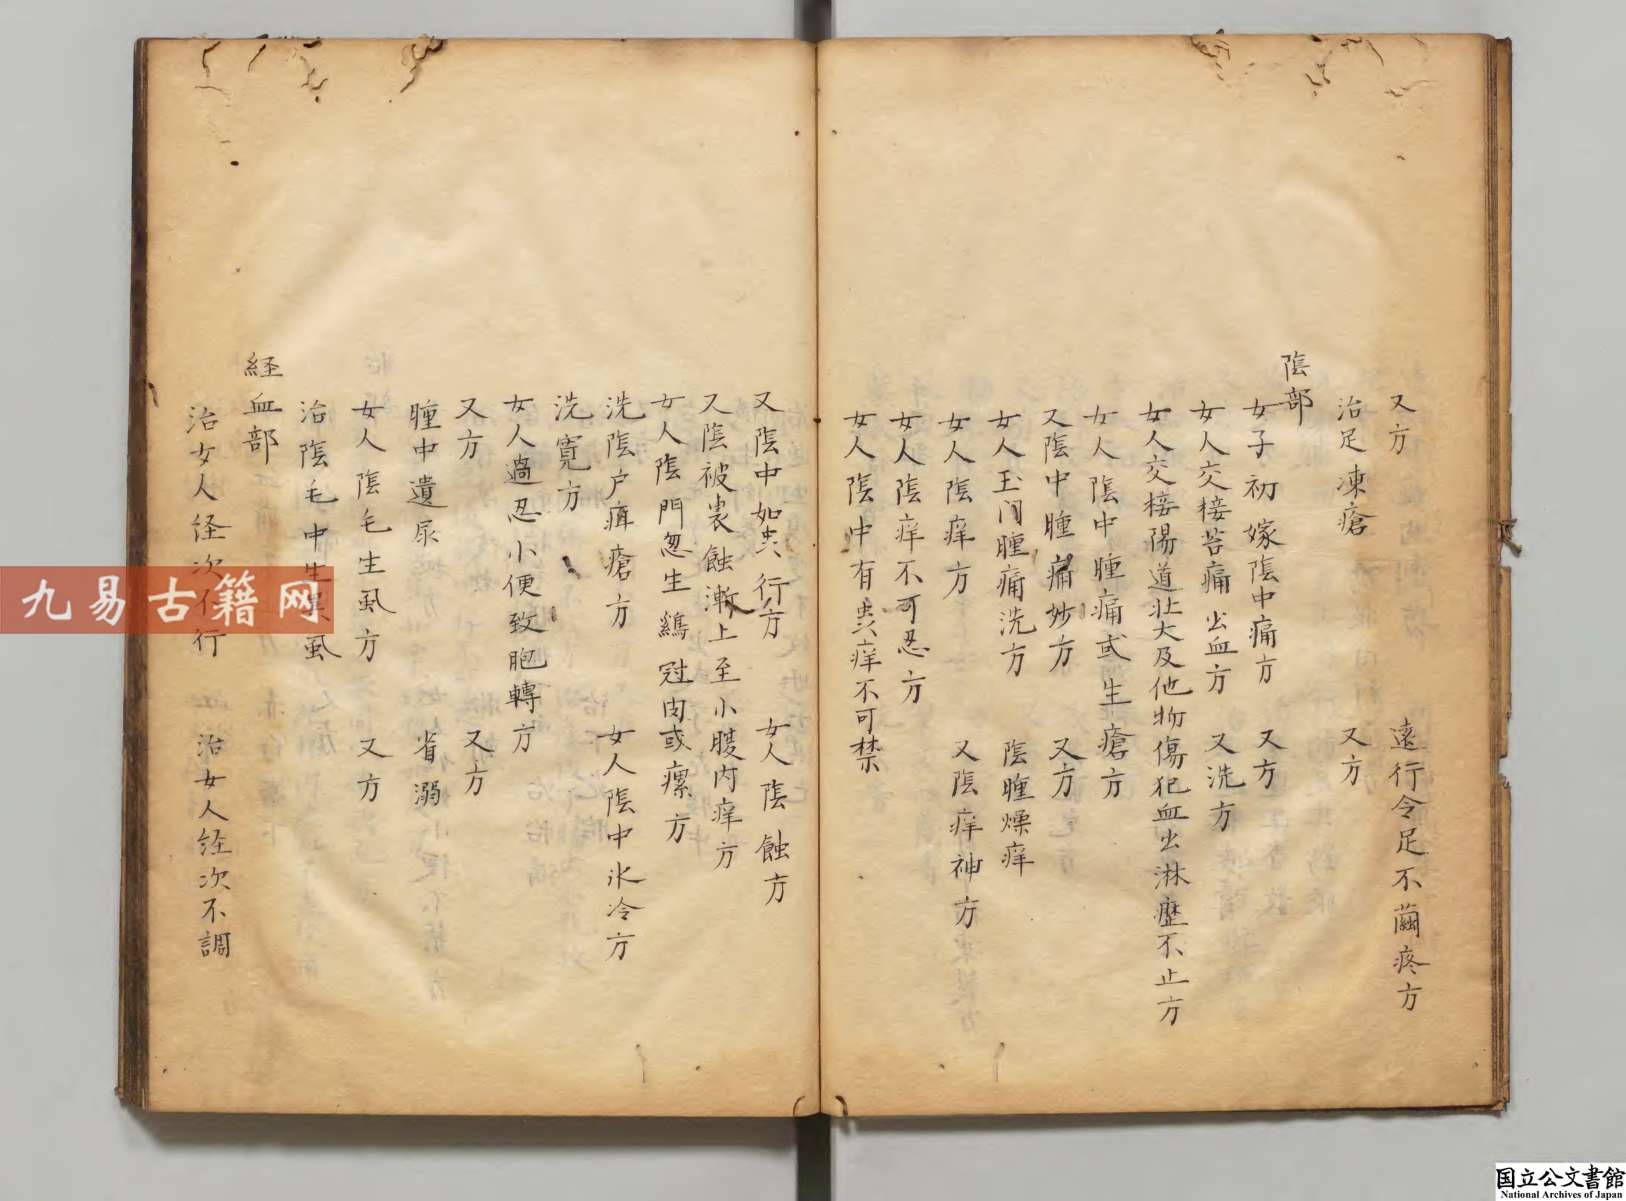 又方　遠行令足不繭疼方
治足凍瘡　又方
陰部
女子初嫁陰中痛方　又方
女人交接苦痛出血方　又洗方
女人交接陽道壯大及他物傷犯血出淋瀝不止方
女人陰中腫痛或生瘡方
又陰中腫痛妙方　又方
女人玉门腫痛洗方　陰腫燥痒
女人陰痒方　又陰痒神方
女人陰痒不可忍方
女人陰中有虫痒不可禁
又陰中如虫行方　女人陰蝕方
又陰被裏蝕漸上至小腹内痒方
女人陰門忽生鷄冠肉或瘰方
洗陰户疽瘡方　女人陰中氷冷方
洗寬方
女人過忍小便致胞轉方
又方　又方
腫中遺尿　省溺
女人陰毛生虱方　又方
治陰毛中生異虱
経血部
治女人经次不行　治女人经次不調
九易古籍网
国立公文書館
National Archives of Japan